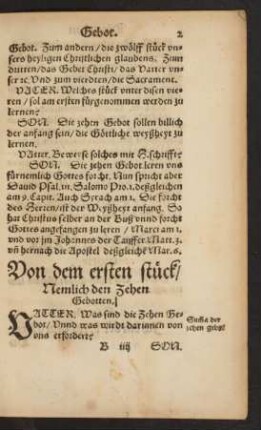 Gebot. 2
Gebot. Zum andern / die zwölff stück vn-
sers heyligen Christlichen glaubens. Zum
dritten / das Gebet Christi / das Vatter vn-
ser ꝛc. Vnd zum vierdten / die Sacrament.
VATER. Welches stück vnter disen vie-
ren / sol am ersten fürgenommen werden zu
lernen?
SON. Die zehen Gebot sollen billich
der anfang sein / die Göttliche weyßheyt zu
lernen.
Vatter. Beweyse solches mit H. schrifft?
SON. Die zehen Gebot leren vns
fürnemlich Gottes forcht. Nun spricht aber
Dauid Psal. Salomo Pro. 1. deßgleichen
am 9. Capit. Auch Syrach am 1. Die forcht
des Herren / ist der Weyßheyt anfang. So
hat Christus selber an der Buß vnnd forcht
Gottes angefangen zu leren / Marci am 1.
vnd vor jm Johannes der Tauffer Mat. 3.
vn̄ hernach die Apostel deßgleichē Mar. 6.
Von dem ersten stück /
Nemlich den Zehen
Gebotten.
VATTER. Was sind die Zehen Ge-
bot / Vnnd was wirdt darinnen von
vns erfordert?
Suma der
zehen gebot
B iij SON.